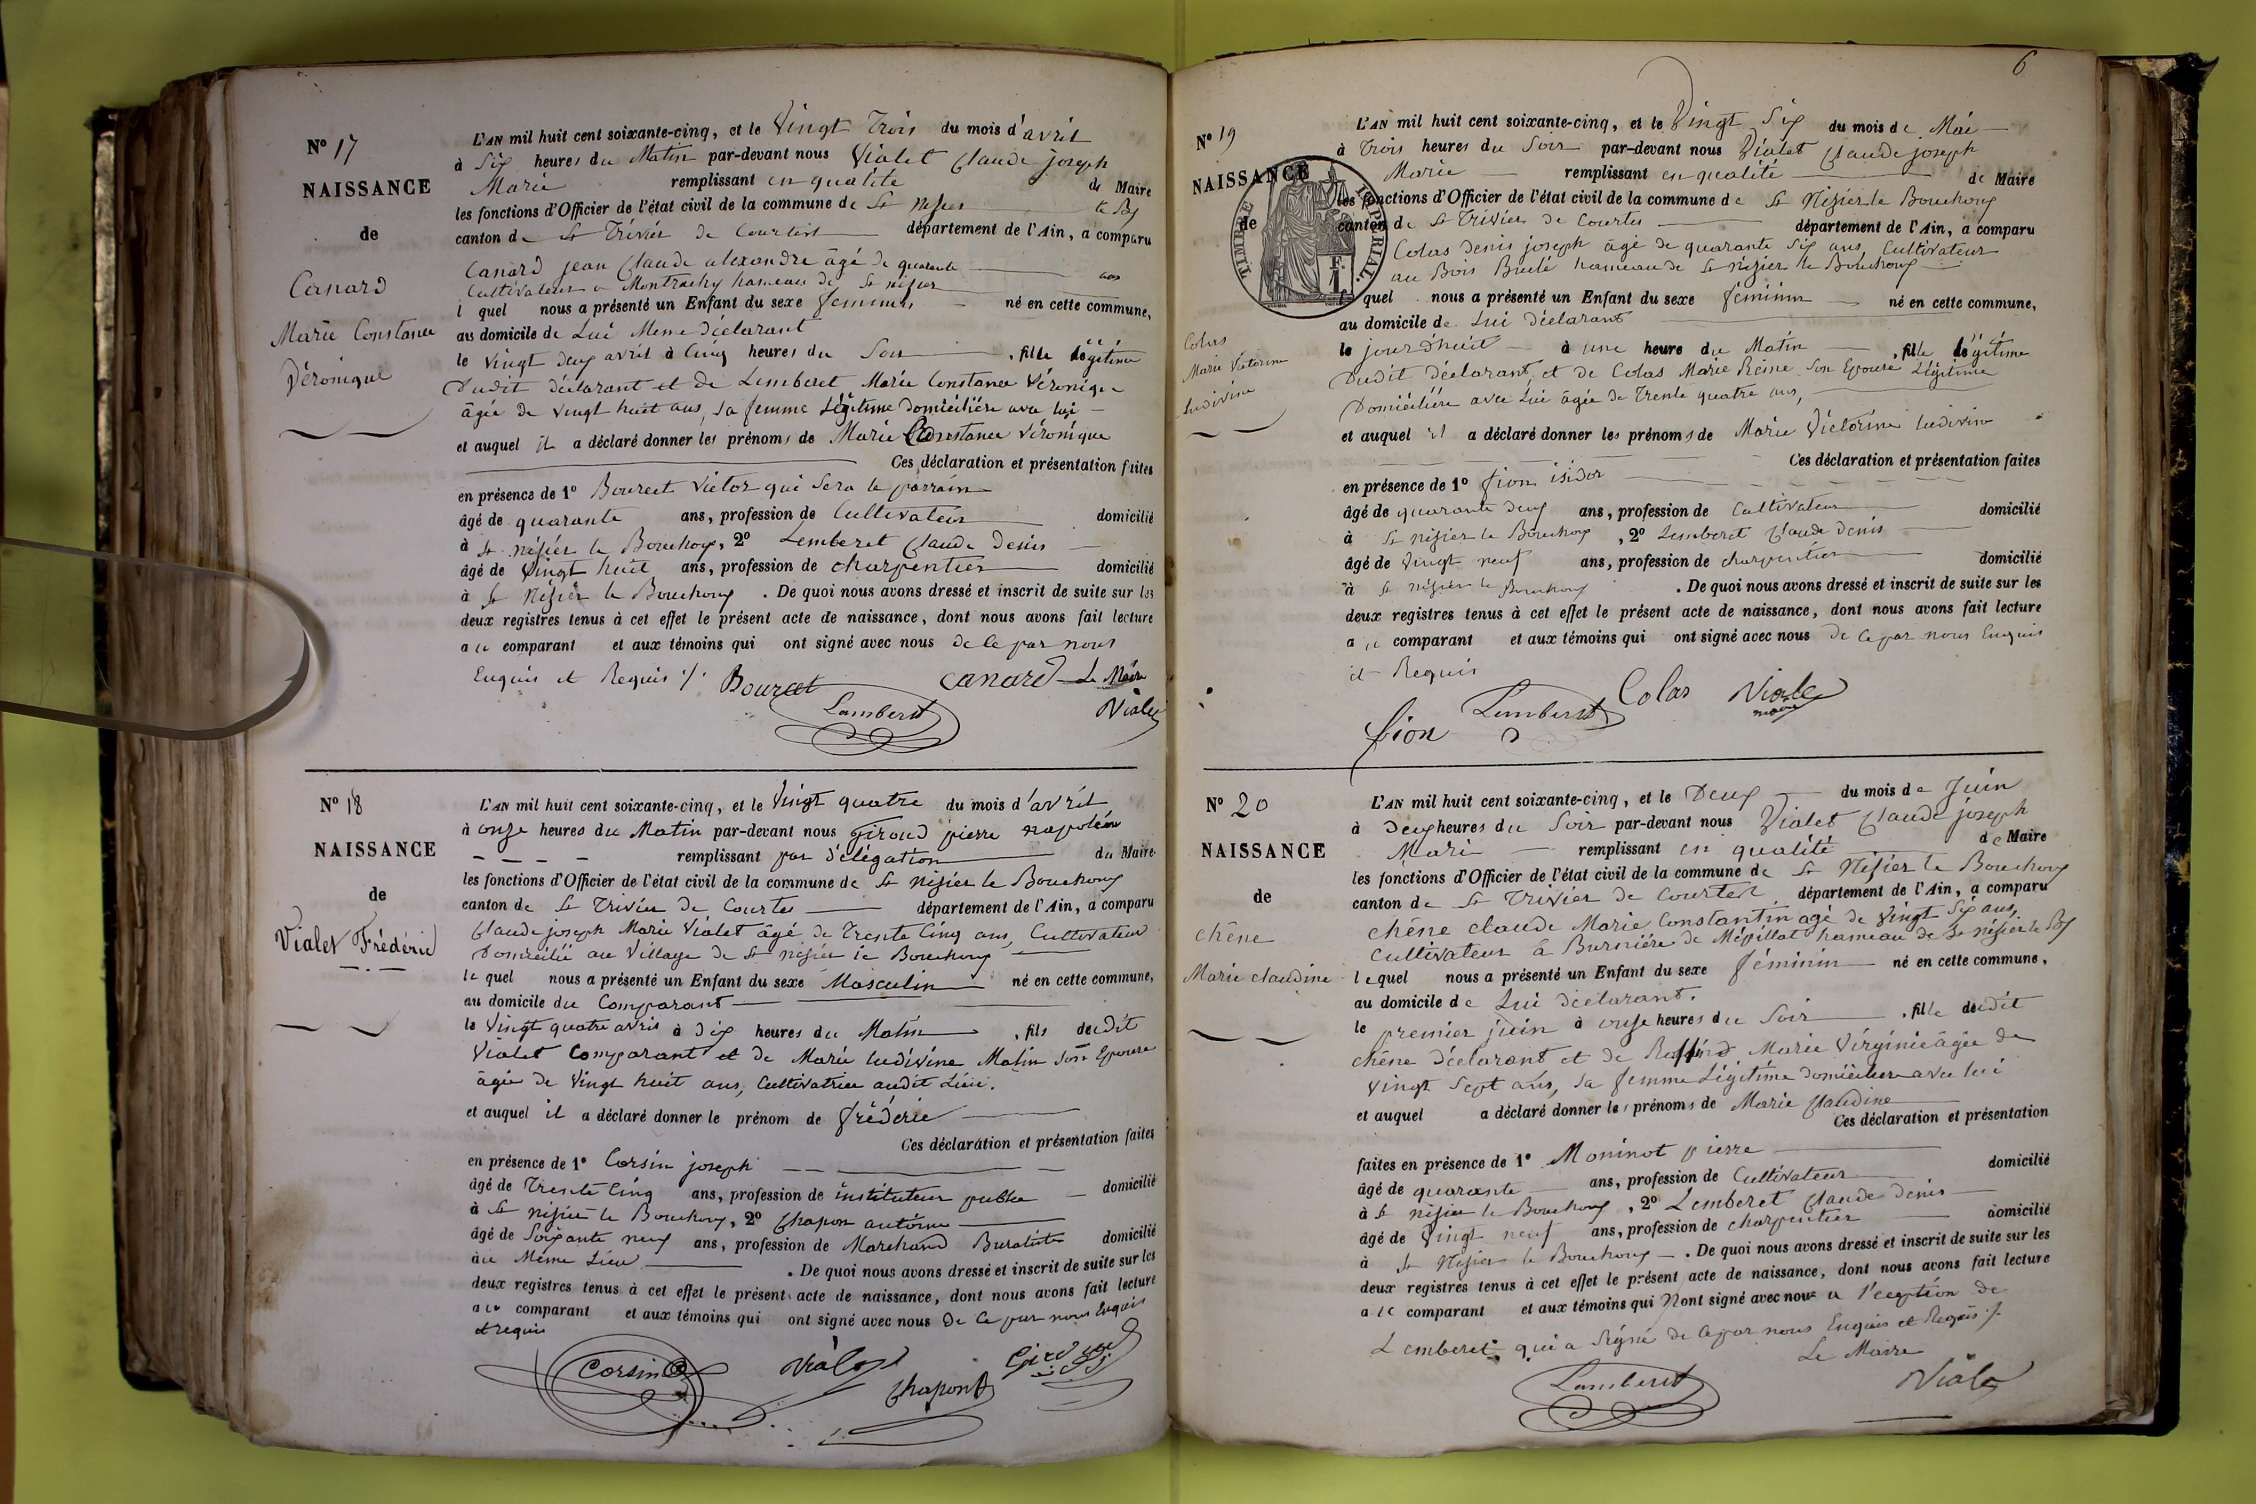 N° 17
NAISSANCE
de
Canard
Marie Constance
Véronique
L'AN mil huit cent soixante-cinq, et le Vingt Trois du mois d'avril
à Six heures du Matin par-devant nous Vialet Claude joseph
Marie remplissant en qualité de Maire
les fonctions d'Officier de l'état civil de la commune de St nizier le Bx
canton de St Trivier de Courtes département de l'Ain, a comparu
Canard jean Claude alexandre âgé de quarante ans
Cultivateur a Montrachy hameau de St nizier
l quel nous a présenté un Enfant du sexe féminin né en cette commune,
au domicile de Lui Meme déclarant
le vingt deux avril à Cinq heures du Soir , fille légitime
Dudit déclarant et de Lemberet Marie Constance Véronique
âgée de vingt huit ans, sa femme Légitime domiciliére avec lui
et auquel il a déclaré donner les prénoms de Marie Constance Véronique
Ces déclaration et présentation faites
en présence de 1° Bourcet Victor qui sera le parrain
âgé de quarante ans, profession de Cultivateur domicilié
à St nizier le Bouchoux, 2° Lemberet Claude Denis
âgé de Vingt huit ans, profession de charpentier domicilié
à St Nizier le Bouchoux . De quoi nous avons dressé et inscrit de suite sur les
deux registres tenus à cet effet le présent acte de naissance, dont nous avons fait lecture
a ce comparant et aux témoins qui ont signé avec nous de ce par nous
Enquis et Requis ./. Bourcet canard Le Maire
Lamberet Vialet
N° 18
NAISSANCE
de
Vialet Frédéric
L'AN mil huit cent soixante-cinq, et le Vingt quatre du mois d'avril
à onze heures du Matin par-devant nous Giroud pierre napoléon
remplissant par délégation du Maire
les fonctions d'Officier de l'état civil de la commune de St nizier le Bouchoux
canton de St Trivier de Courtes département de l'Ain, a comparu
Claude joseph Marie Vialet âgé de Trente Cinq ans, Cultivateur
Domicilié au Village de St nizier le Bouchoux
le quel nous a présenté un Enfant du sexe Masculin né en cette commune,
au domicile du Comparant
le Vingt quatre avril à Dix heures du Matin , fils dudit
Vialet Comparant et de Marie ludivine Matin son Epouse
âgée de Vingt huit ans, Cultivatrice audit Lieu.
et auquel il a déclaré donner le prénom de frédéric
Ces déclaration et présentation faites
en présence de 1° Corsin joseph
âgé de Trente Cinq ans, profession de instituteur public domicilié
à St nizier le Bouchoux, 2° Chapon antoine
âgé de Soixante neuf ans, profession de Marchand Buraliste domicilié
au Même Lieu . De quoi nous avons dressé et inscrit de suite sur les
deux registres tenus à cet effet le présent acte de naissance, dont nous avons fait lecture
a ce comparant et aux témoins qui ont signé avec nous de ce par nous Enquis
et requis
Corsin Vialet Chapon Giroud
6
N° 19
NAISSANCE
de
TIMBRE IMPÉRIAL.
Colas
Marie Victorine
Ludivine
L'AN mil huit cent soixante-cinq, et le Vingt Six du mois de Mai
à Trois heures du Soir par-devant nous Vialet Claude joseph
Marie remplissant en qualité de Maire
les fonctions d'Officier de l'état civil de la commune de St Nizier le Bouchoux
canton de St Trivier de Courtes département de l'Ain, a comparu
Colas denis joseph âgé de quarante Six ans, Cultivateur
au Bois Brulé hameau de St nizier le Bouchoux
le quel nous a présenté un Enfant du sexe féminin né en cette commune,
au domicile de Lui déclarant
le jourd'huit à une heure du Matin , fille légitime
Dudit déclarant et de Colas Marie Reine Son Epouse Légitime
Domiciliére avec Lui âgée de Trente quatre ans,
et auquel il a déclaré donner les prénoms de Marie Victorine ludivine
Ces déclaration et présentation faites
en présence de 1° fion isidor
âgé de quarante deux ans, profession de Cultivateur domicilié
à St nizier le Bouchoux , 2° Lemberet Claude Denis
âgé de Vingt neuf ans, profession de charpentier domicilié
à St nizier le Bouchoux . De quoi nous avons dressé et inscrit de suite sur les
deux registres tenus à cet effet le présent acte de naissance, dont nous avons fait lecture
a ce comparant et aux témoins qui ont signé avec nous de ce par nous Enquis
et Requis
fion Lamberet Colas Vialet
maire
N° 20
NAISSANCE
de
chêne
Marie claudine
L'AN mil huit cent soixante-cinq, et le Deux du mois de Juin
à Deux heures du Soir par-devant nous Vialet Claude joseph
Marie remplissant en qualité de Maire
les fonctions d'Officier de l'état civil de la commune de St Nizier le Bouchoux
canton de St Trivier de Courtes , département de l'Ain, a comparu
chêne claude Marie Constantin agé de Vingt Six ans,
Cultivateur à Burnière de Mépillat hameau de St nizier le Bx
lequel nous a présenté un Enfant du sexe féminin né en cette commune,
au domicile de Lui déclarant.
le premier juin à onze heures du Soir , fille dudit
chêne déclarant et de Marie Virginie âgée de
Vingt Sept ans, sa femme Légitime domiciliere avec lui
et auquel a déclaré donner les prénoms de Marie Claudine
Ces déclaration et présentation
faites en présence de 1° Moninot pierre
âgé de quarante ans, profession de Cultivateur domicilié
à St nizier le Bouchoux , 2° Lemberet Claude denis
âgé de Vingt neuf ans, profession de charpentier domicilié
à St Nizier le Bouchoux . De quoi nous avons dressé et inscrit de suite sur les
deux registres tenus à cet effet le présent acte de naissance, dont nous avons fait lecture
a ce comparant et aux témoins qui Nont signé avec nous a l'éception de
Lemberet qui a Signé de ce par nous Enquis et Requis ./.
Le Maire
Lamberet Vialet